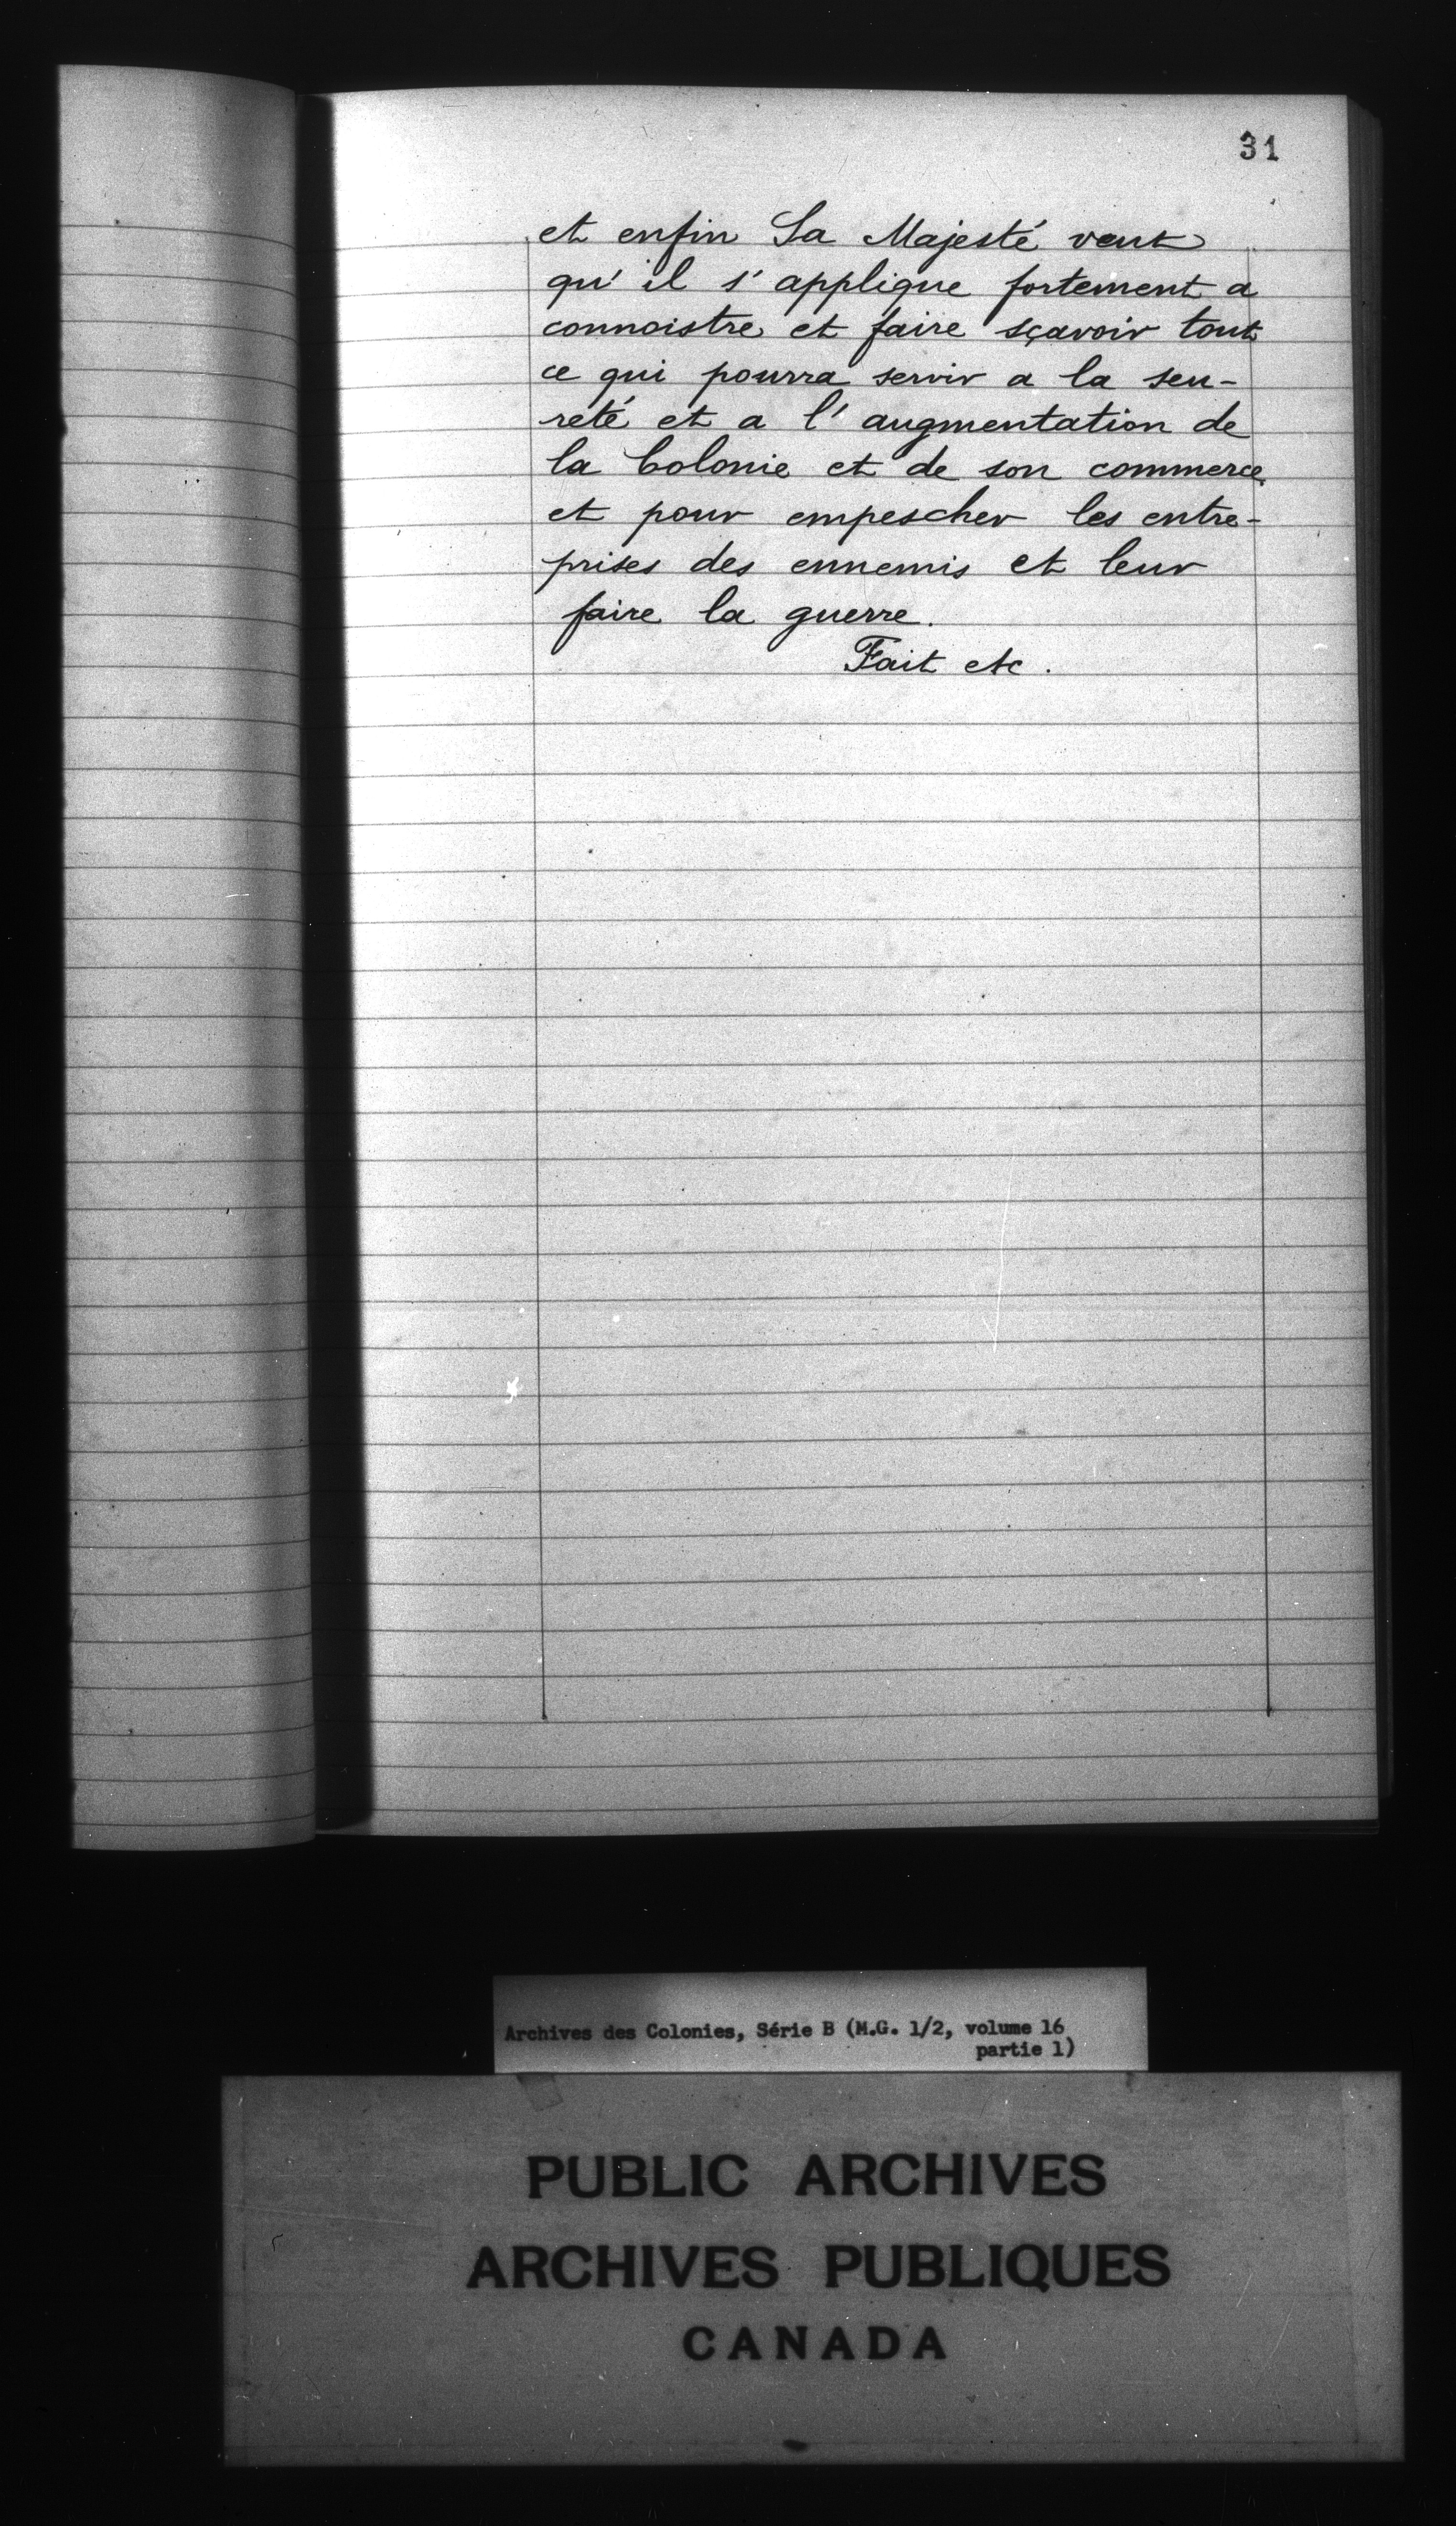 31
et enfin Sa Majesté veut
qu'il s'applique fortement a
connoistre et faire sçavoir tout
ce qui pourra servir a la seu-
reté et a l'augmentation de
la Colonie et de son commerce
et pour empescher les entre-
prises des ennemis et leur
faire la guerre.
Fait etc.
Archives des Colonies, Série B (M.G. 1/2, volume 16
partie 1)
PUBLIC ARCHIVES
ARCHIVES PUBLIQUES
CANADA